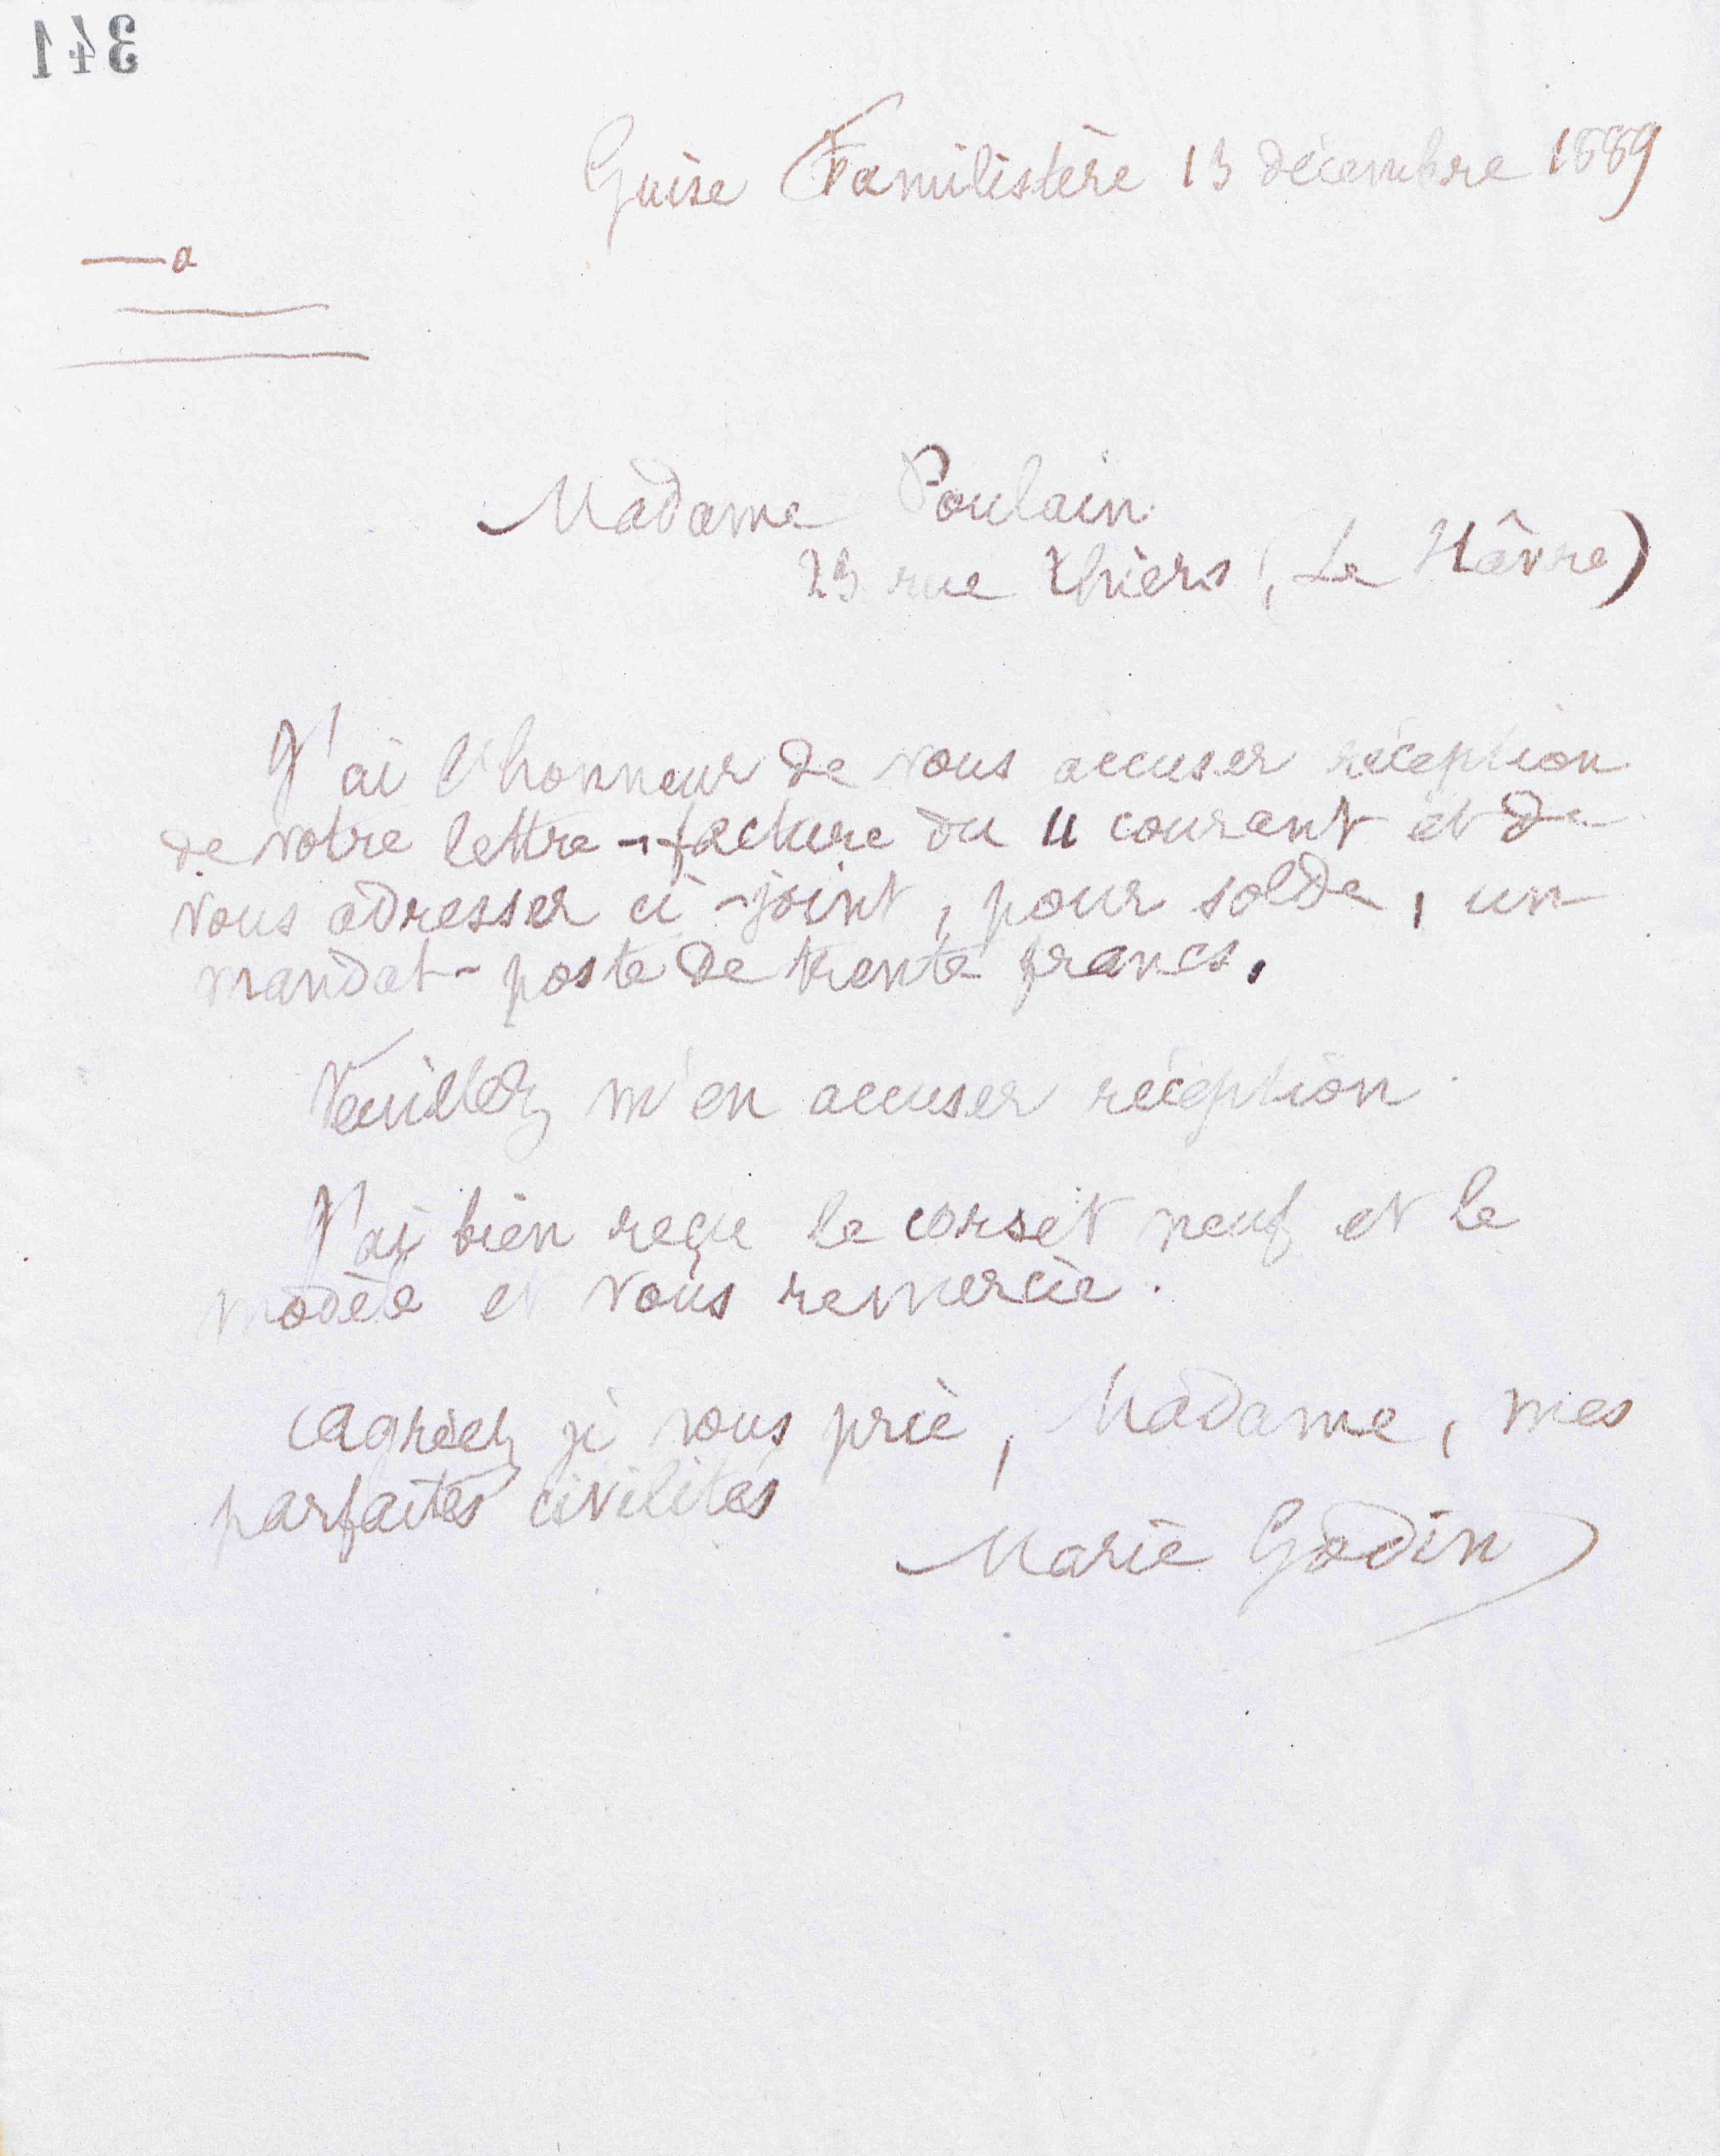 341
Guise Familistère 13 décembre 1889
Madame Poulain
23 rue Thiers (Le Hâvre)
J'ai l'honneur de vous accuser réception
de votre lettre-facture du 11 courant et de
vous adresser ci-joint, pour solde, un
mandat-poste de trente francs.
Veuillez m'en accuser réception.
J'ai bien reçu le corset neuf et le
modèle et vous remercie.
Agréez je vous prie, Madame, mes
parfaites civilités
Marie Godin